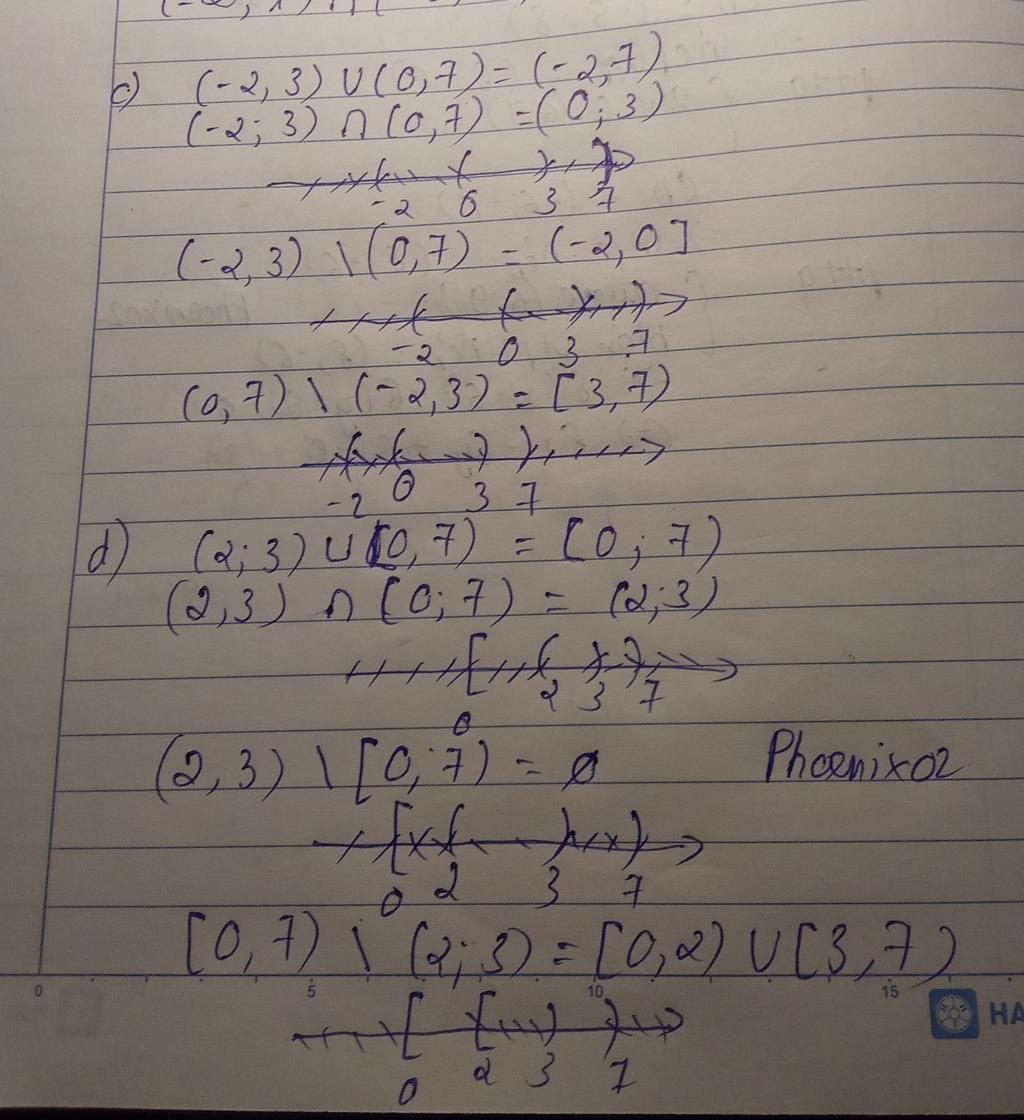 c) (-2, 3) ∪ (0, 7) = (-2, 7)
(-2; 3) ∩ (0, 7) = (0; 3)
-2 0 3 7
(-2, 3) \ (0, 7) = (-2, 0]
-2 0 3 7
(0, 7) \ (-2, 3) = [3, 7)
-2 0 3 7
d) (2; 3) ∪ [0, 7) = [0; 7)
(2, 3) ∩ [0; 7) = (2; 3)
0 2 3 7
(2, 3) \ [0; 7) = ∅ Phoenix02
0 2 3 7
[0, 7) \ (2; 3) = [0, 2) ∪ [3, 7)
0 5 10 15 HA
0 2 3 7